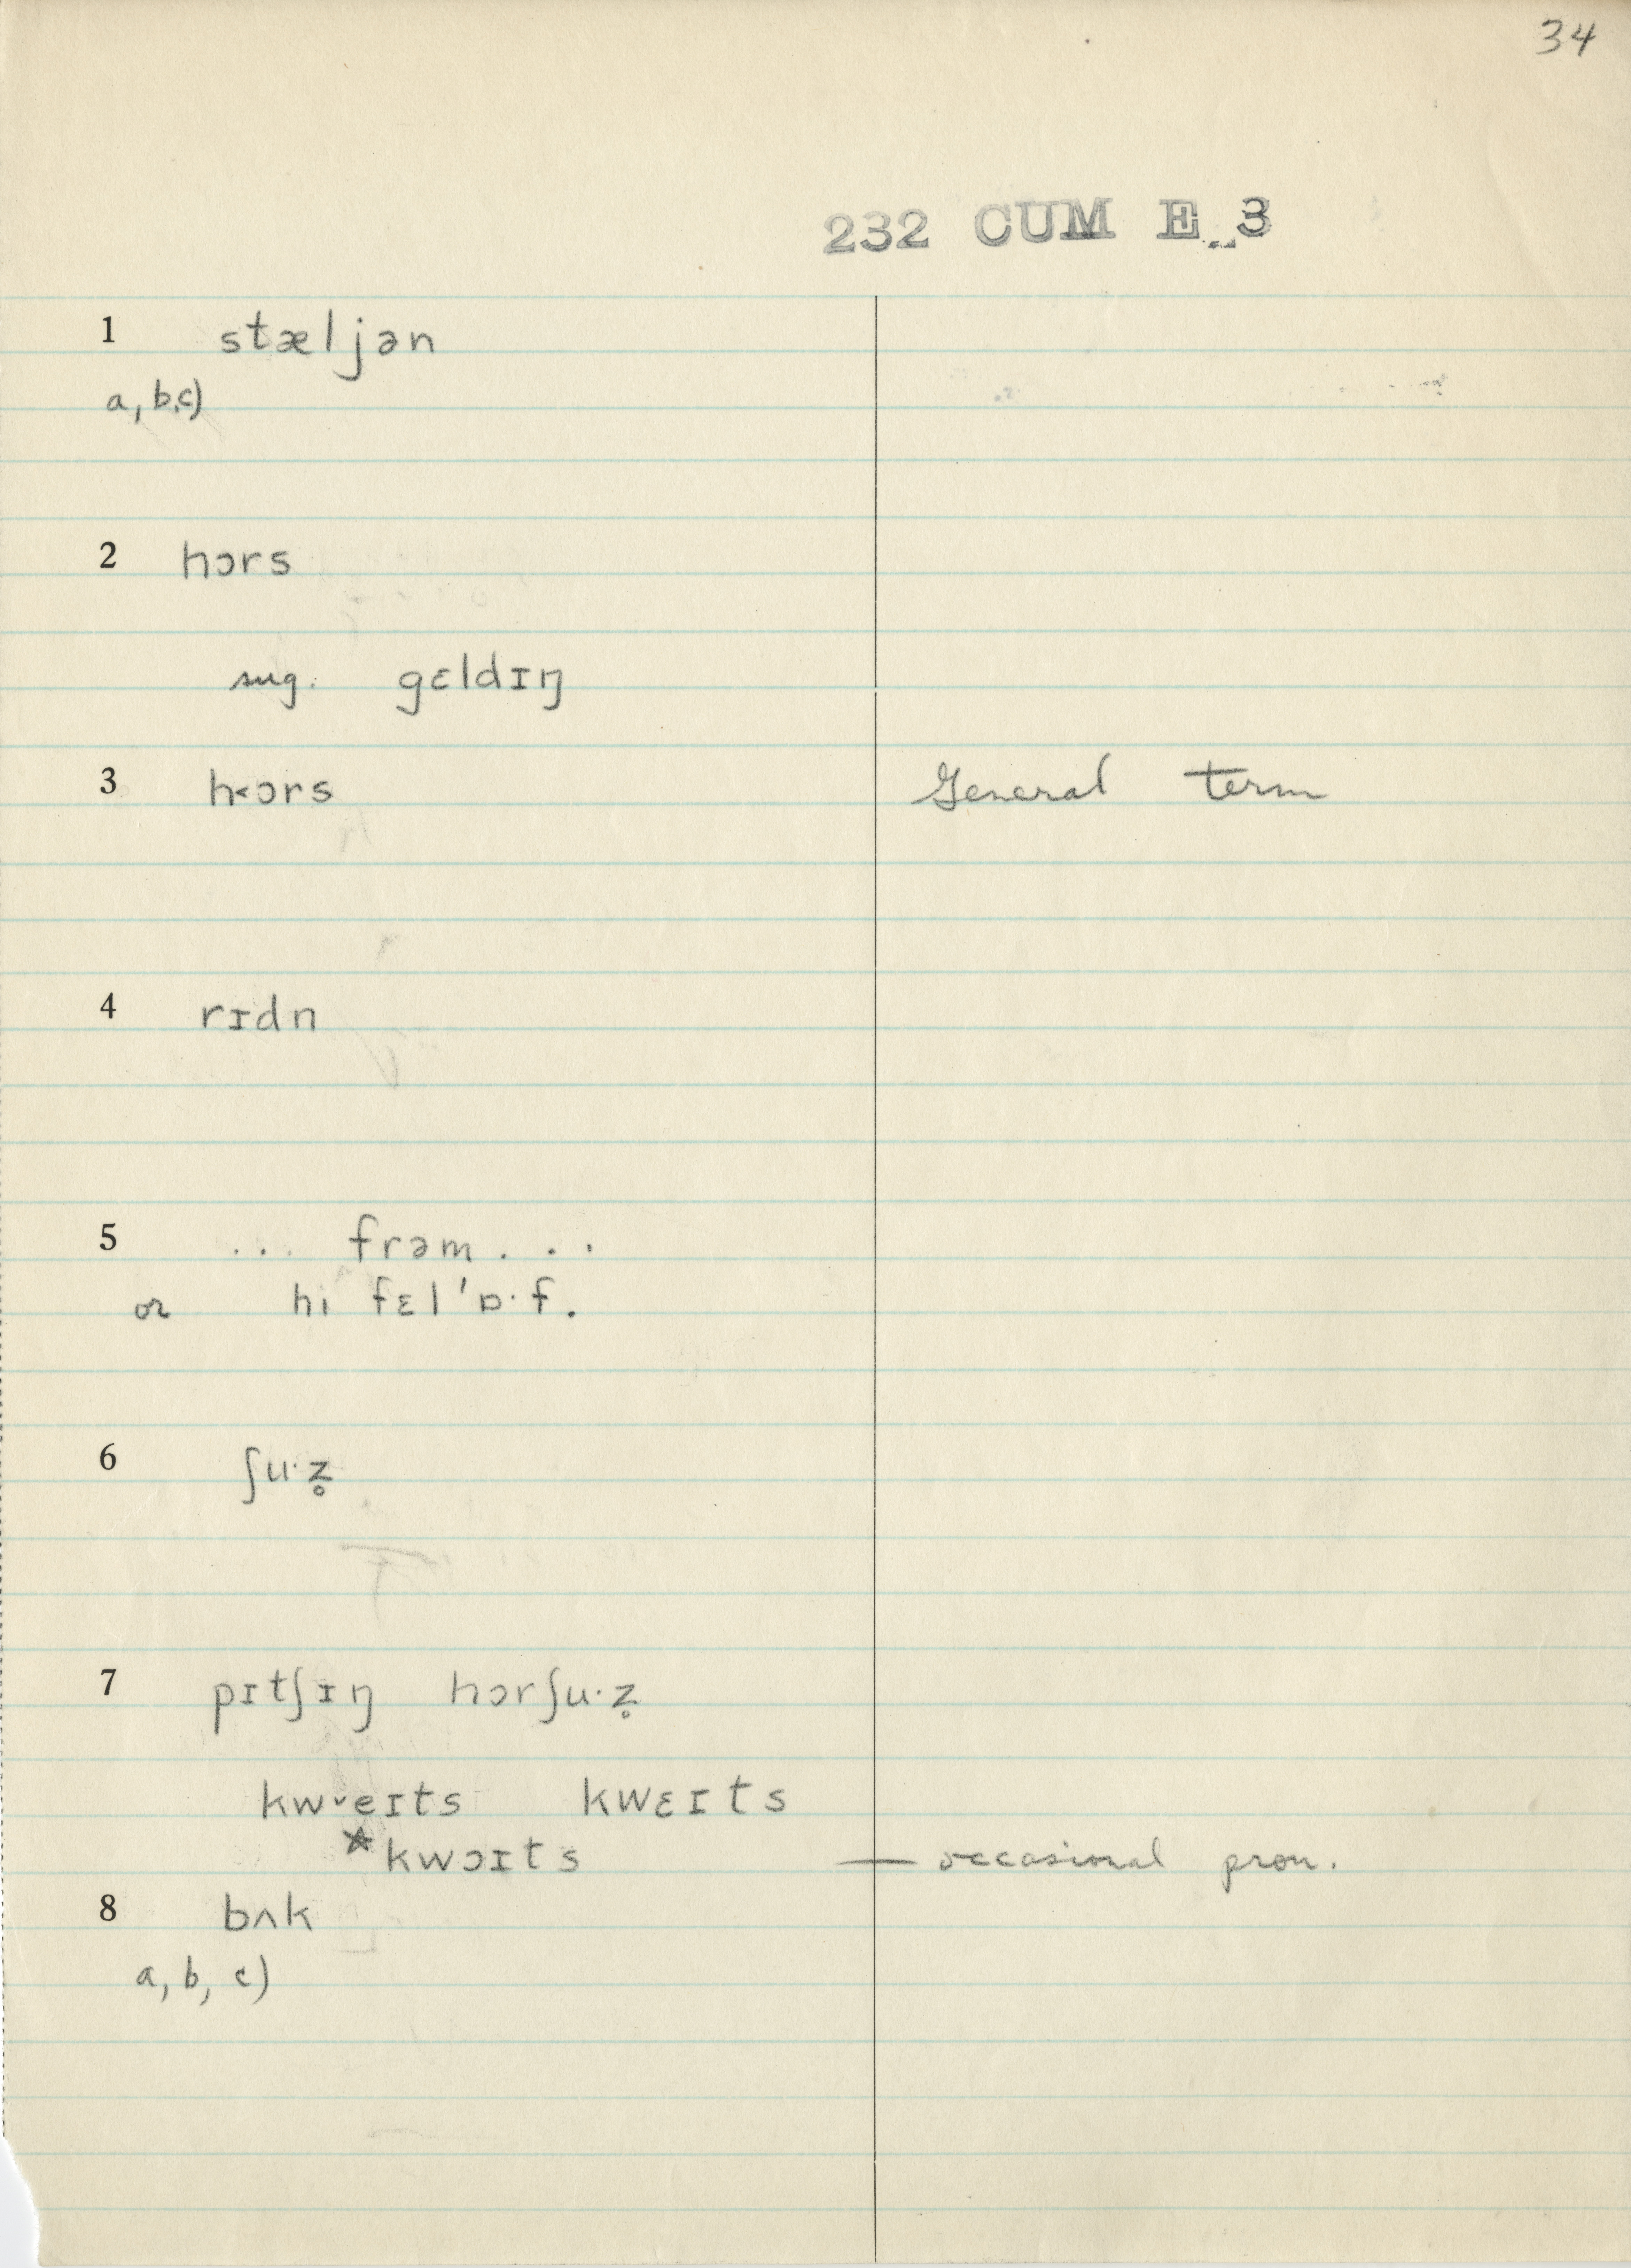 34
232 CUM E 3
1 stæljən
a, b, c)
2 hɔrs
sug. gɛldɪŋ
3 h˂ɔrs General term
4 rɪdn
5 ... frəm ...
or hi fɛl 'ɒ·f.
6 ʃu·z̥
7 pɪtʃɪŋ hɔrʃu·z̥
kw˅eɪts kwɛɪts
*kwɔɪts — occasional pron.
8 bʌk
a, b, c)